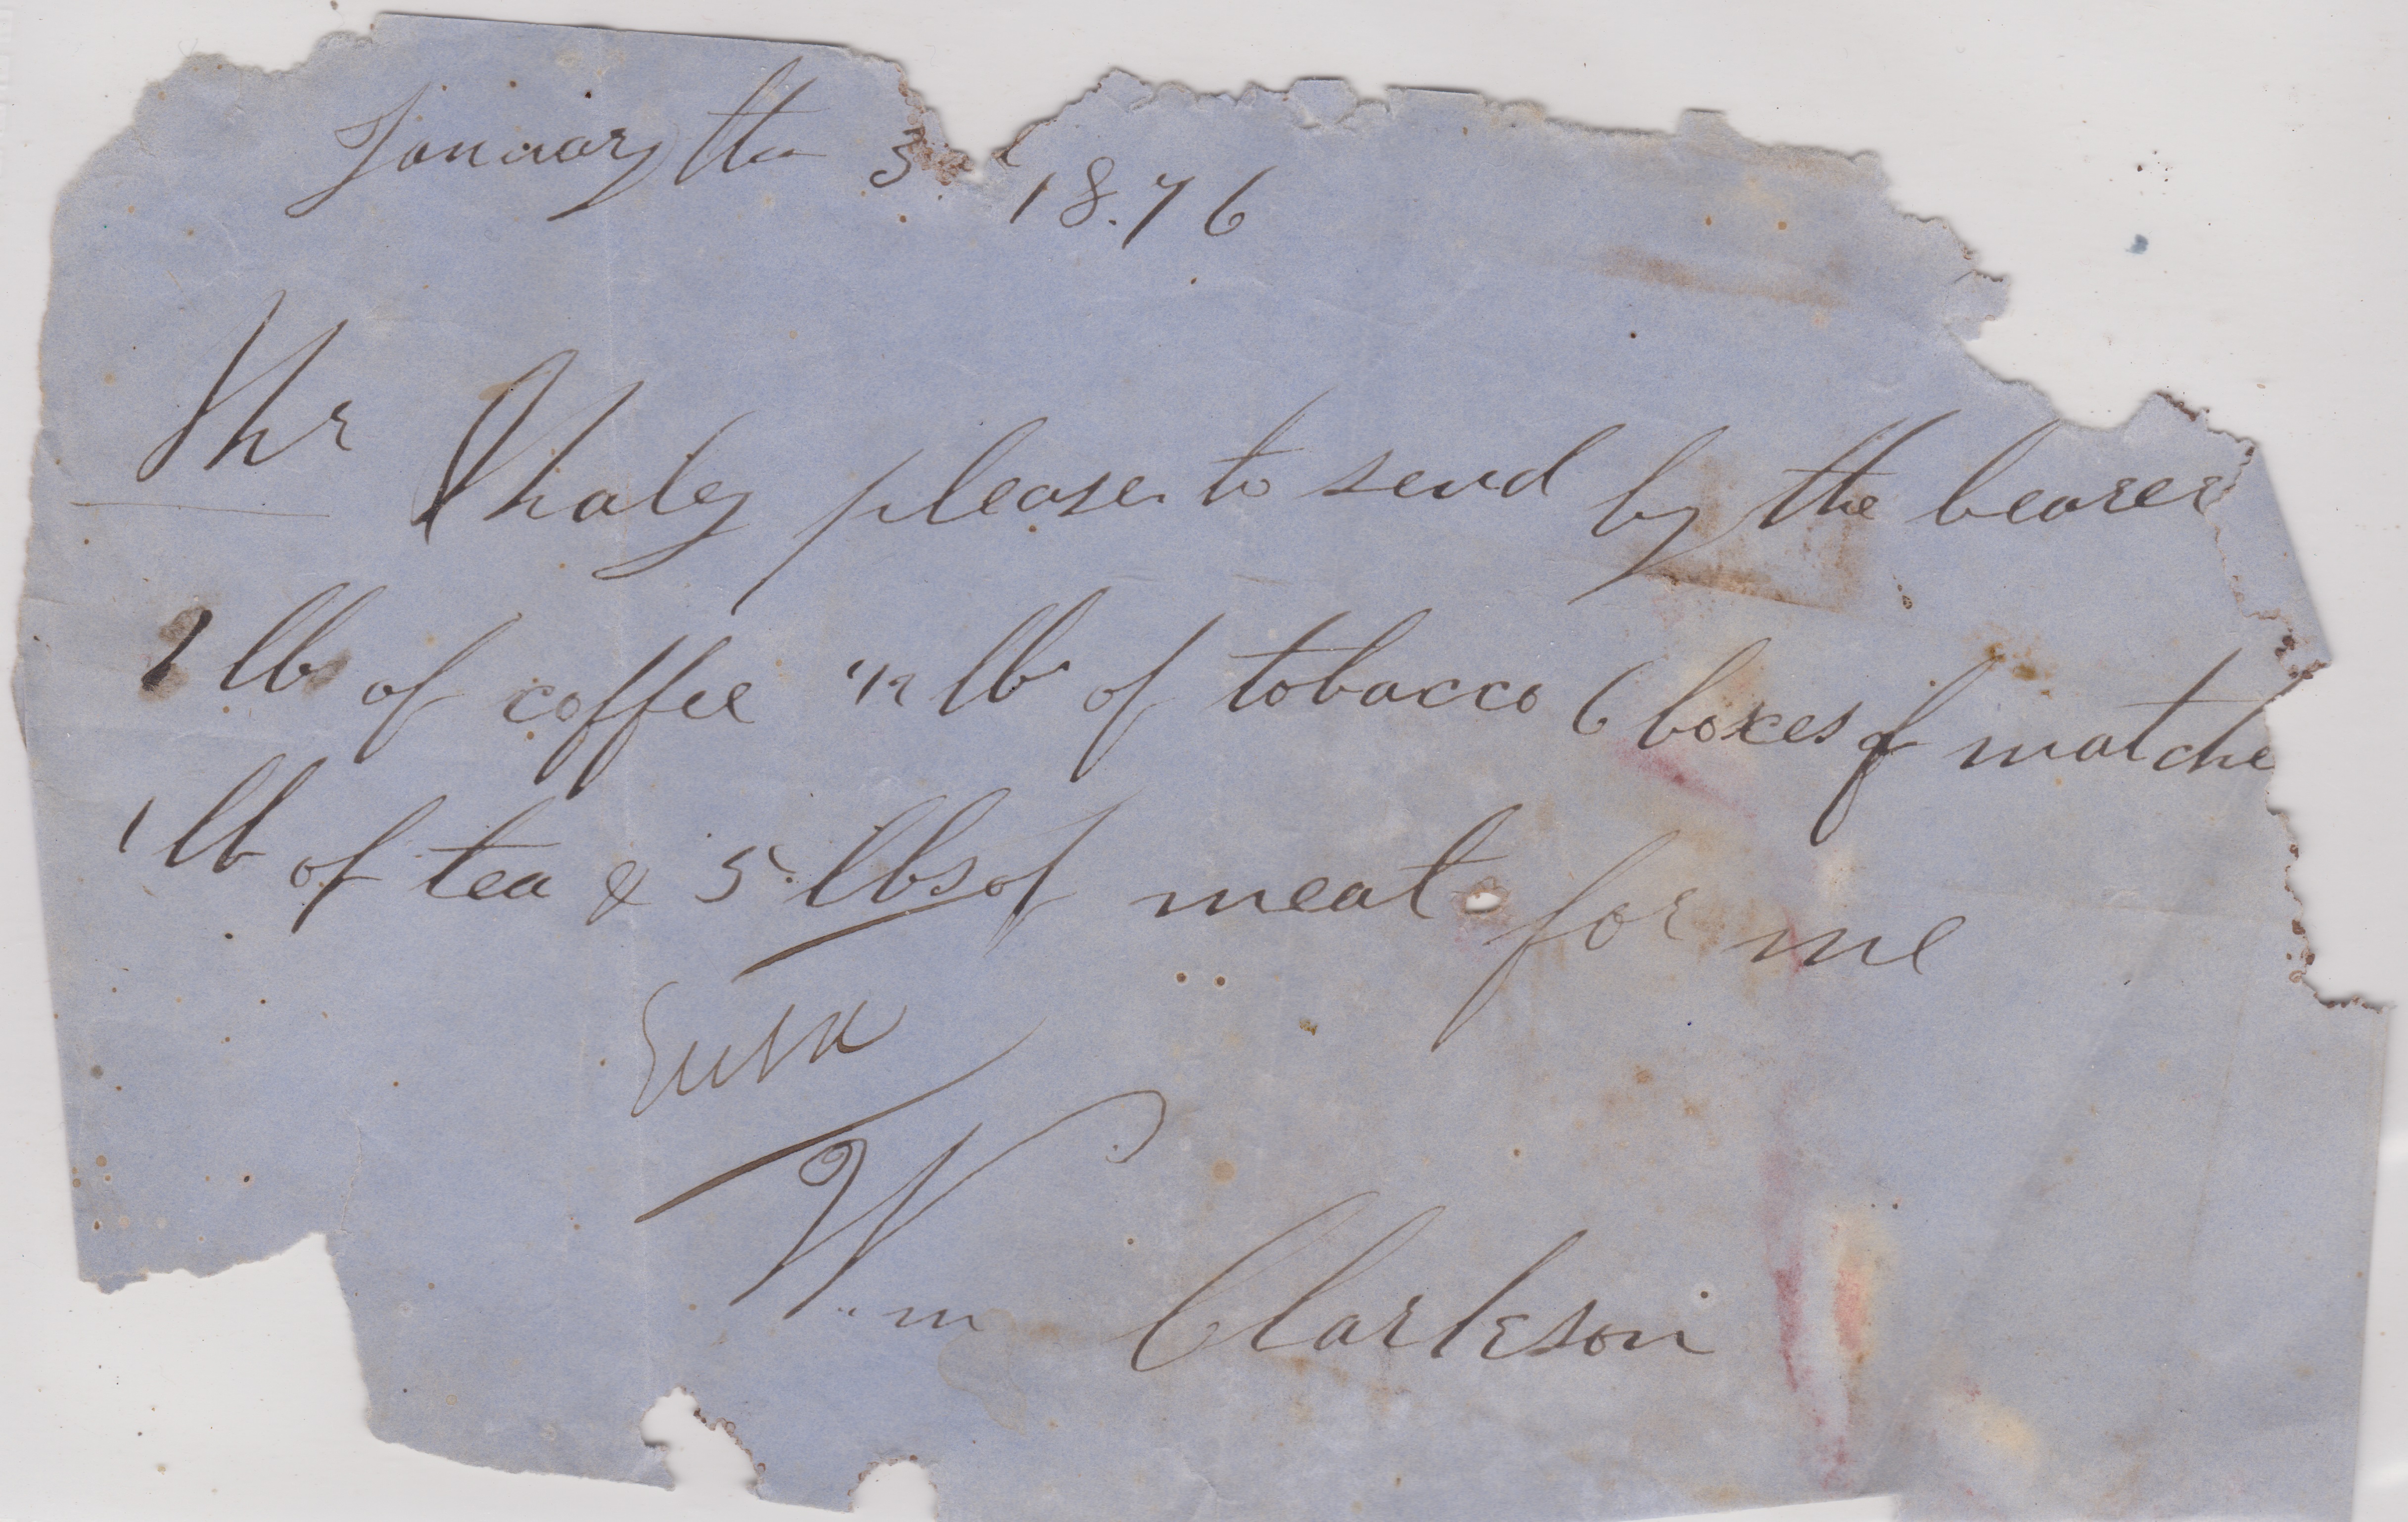 January the 3 1876
Mr Whaley please to send by the bearer
2 lbs of coffee 1/2 lb of tobacco 6 boxes of matche
1 lb of tea & 5 lbs of meat for me
Wm Clarkson